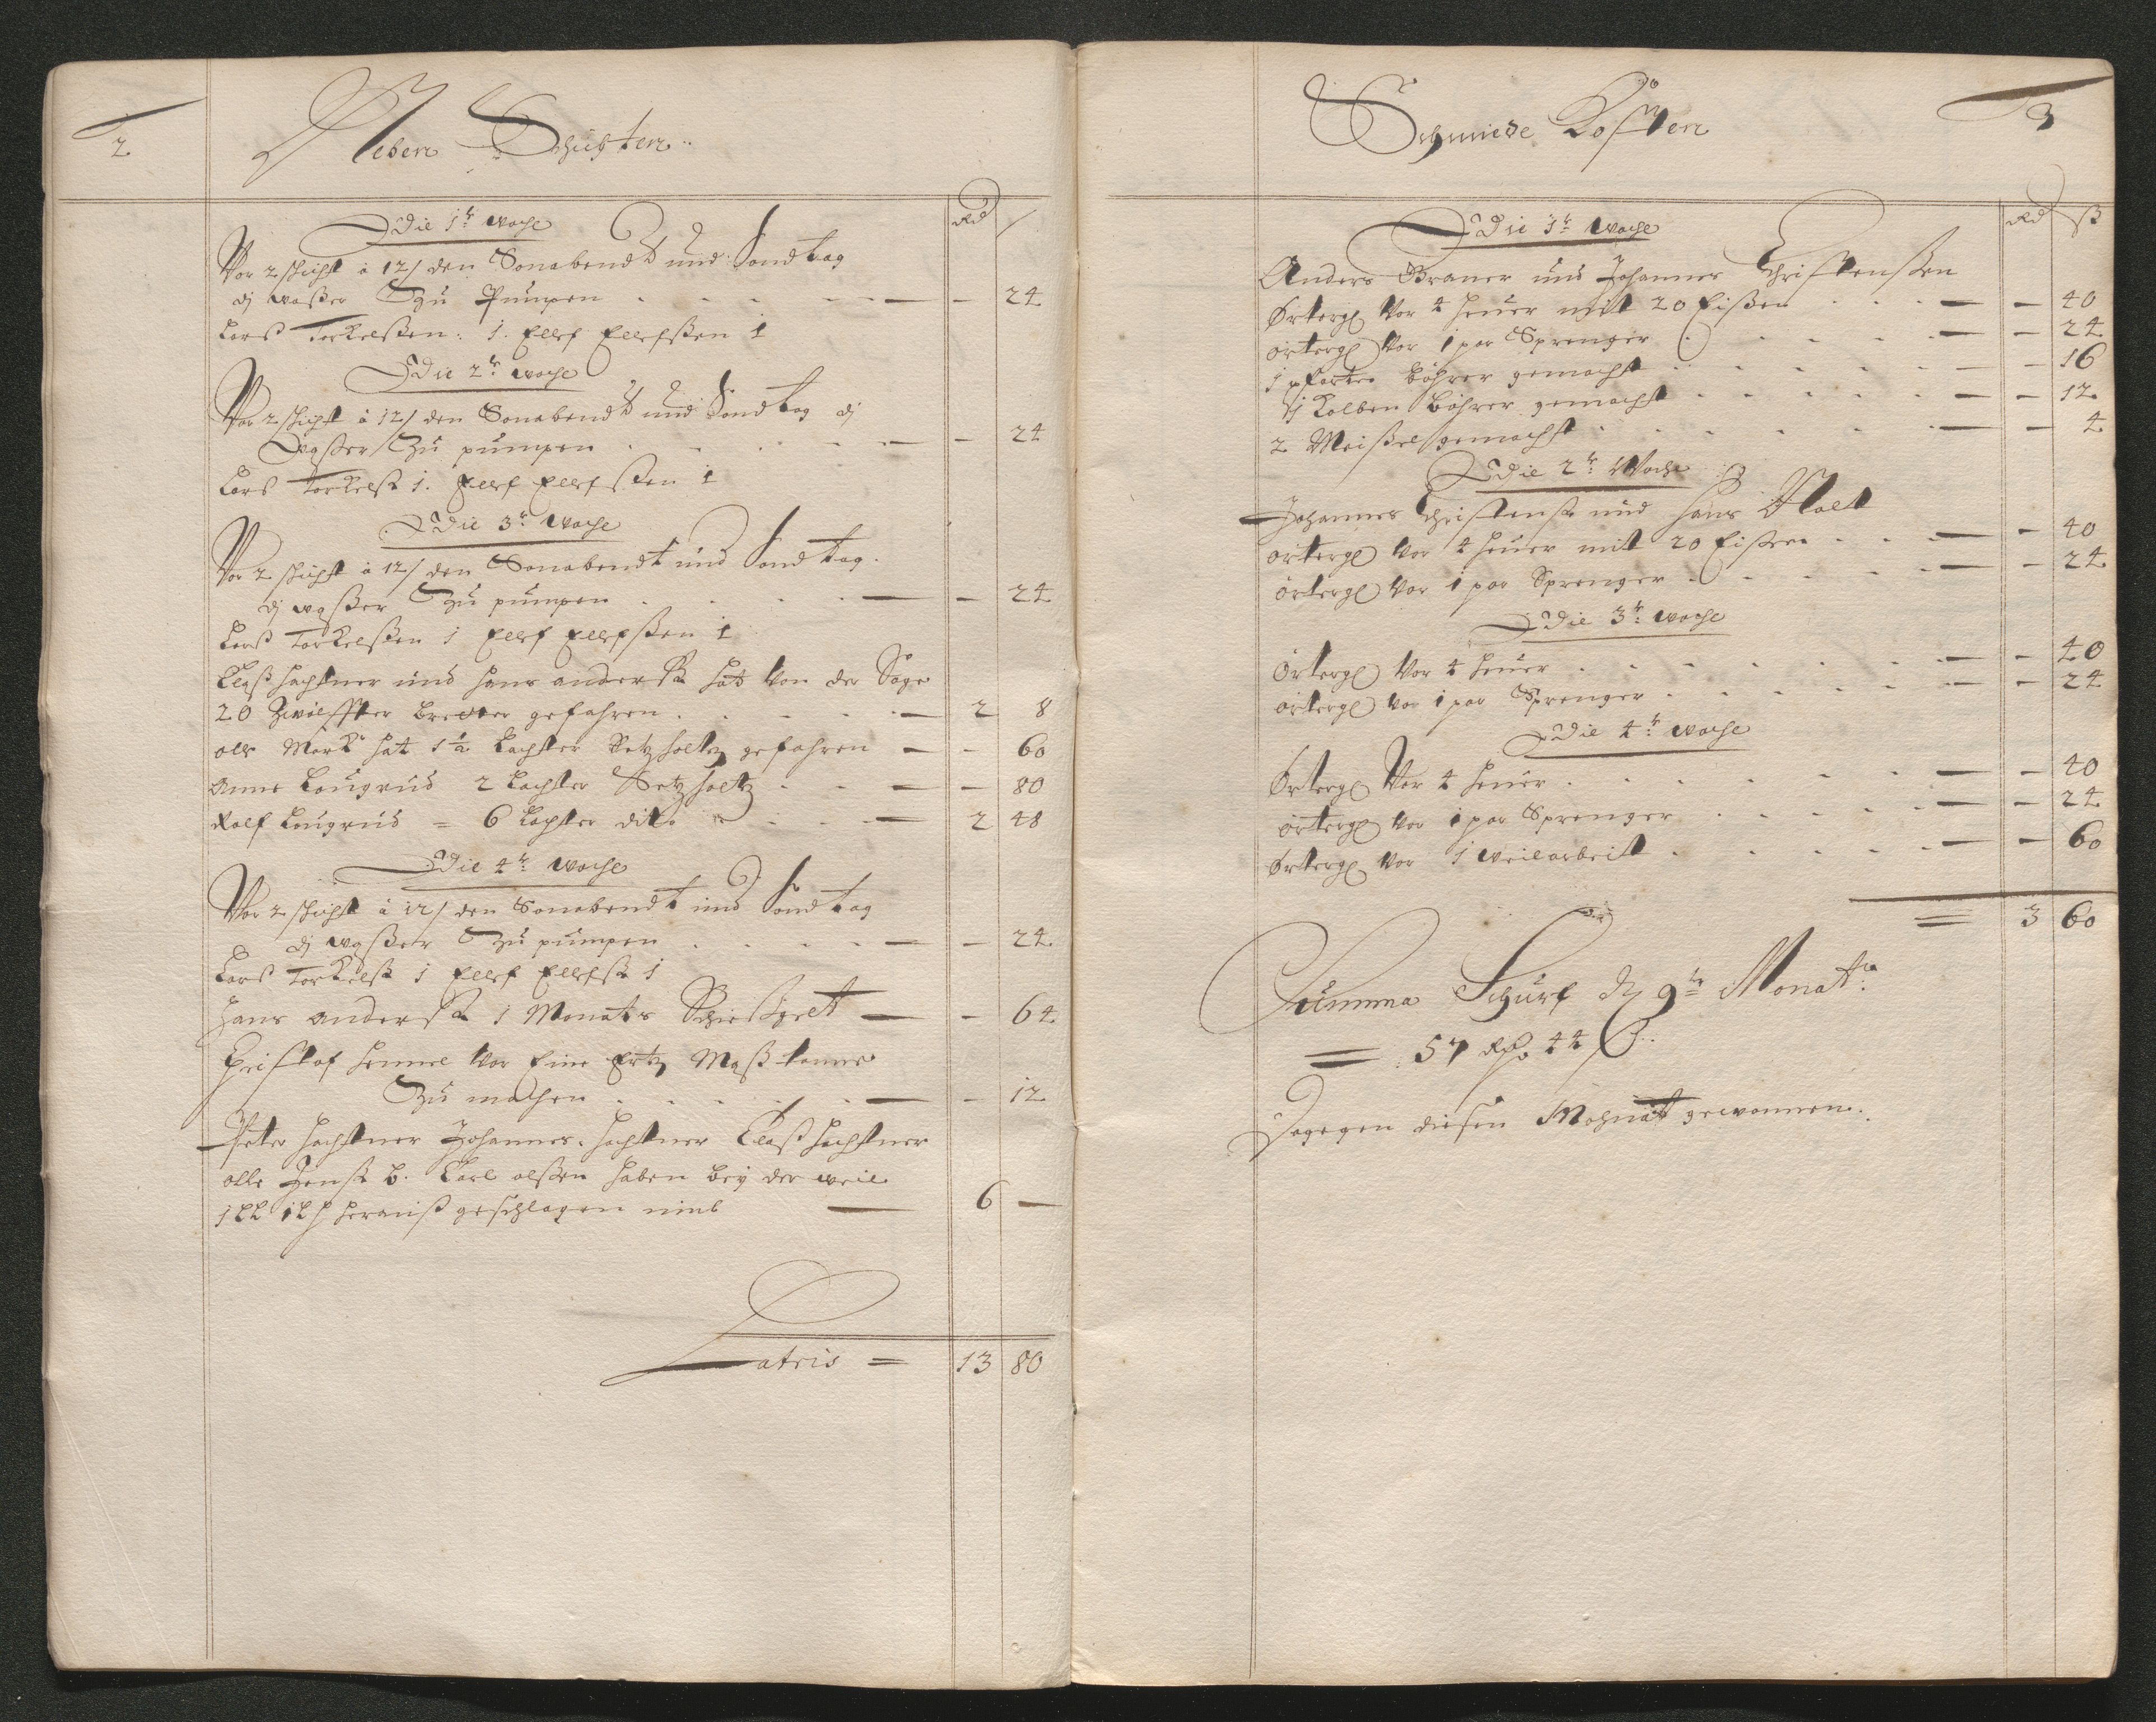 2
Neben Schichten
Rd
Die 1te woche
Vor 2 schicht à 12 / den Sonabendt und Sondtag
dj waßer Zu Pumpen - - 24
Lars Torkelßen: 1. Ellef Ellefßen 1
Die 2te woche
Vor 2 schicht à 12 / den Sonabendt und Sondtag dj
Waßer Zu pumpen - - 24
Lars Torkelß 1. Ellef Ellefßen 1
Die 3te woche
Vor 2 schicht à 12 / den Sonabendt und Sondtag
dj waßer Zu pumpen - - 24
Lars Torkelßen 1 Ellef Ellefßen 1
Claß hachtner und hans anderß hat von der Sage
20 Zwölffter bretter gefahren - 2 8
ole Mork hat 1½ Lachter Setzholtz gefahren - - 60
Anne Lougrud 2 Lachter Setzholtz - - 80
Rolf Lougrud = 6 Lachter dito - 2 48
Die 4te woche
Vor 2 schicht à 12 / den Sonabendt und Sondtag
dj waßer Zu pumpen - - 24
Lars Torkelß 1 Ellef Ellefß 1
Hans anderß 1 Monats - - 64
Christof hemmel vor Eine Ertz Maß tonne
Zu machen - - 12
Peter hachtner Johannes hachtner Claß hachtner
olle Jenß b. Carl olßen haben bey der weil
herauß geschlagen - 6 -
Latris = 13 80
Schmiede Kosten
3
Rd ß
Die 1te woche
Anders Braner und Johannes Christenßen
örtergl vor 4 heuer mit 20 Eißen - - 40
örtergl vor 1 par Sprenger - - 24
1 bohrer gemacht - - 16
1 Kolben bohrer gemacht - - 12
2 Meißel gemacht - - 4
Die 2te Woche
Johannes Christenß und hans Holt
örtergl vor 4 heuer mit 20 Eißen - - 40
örtergl vor 1 par Sprenger - - 24
Die 3te woche
örtergl vor 4 heuer - - 40
örtergl vor 1 par Sprenger - - 24
Die 4te woche
örtergl Vor 4 heuer - - 40
örtergl vor 1 par Sprenger - - 24
örtergl vor 1 weilarbeit - - 60
= 3 60
Summa Schurf dz 9te Monat:
= 57 Rd 44 ß
Dagegen diesen Mohnat gewonnen.